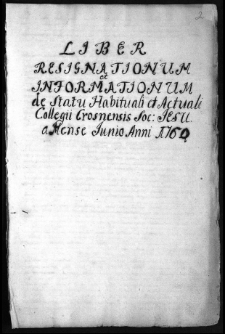 LIBER
RESIGNATIONUM
et
INFORMATIONUM
de Statu Habituali et Actuali
Collegii Crosnensis Soc: JESU
a Mense Junio Anni